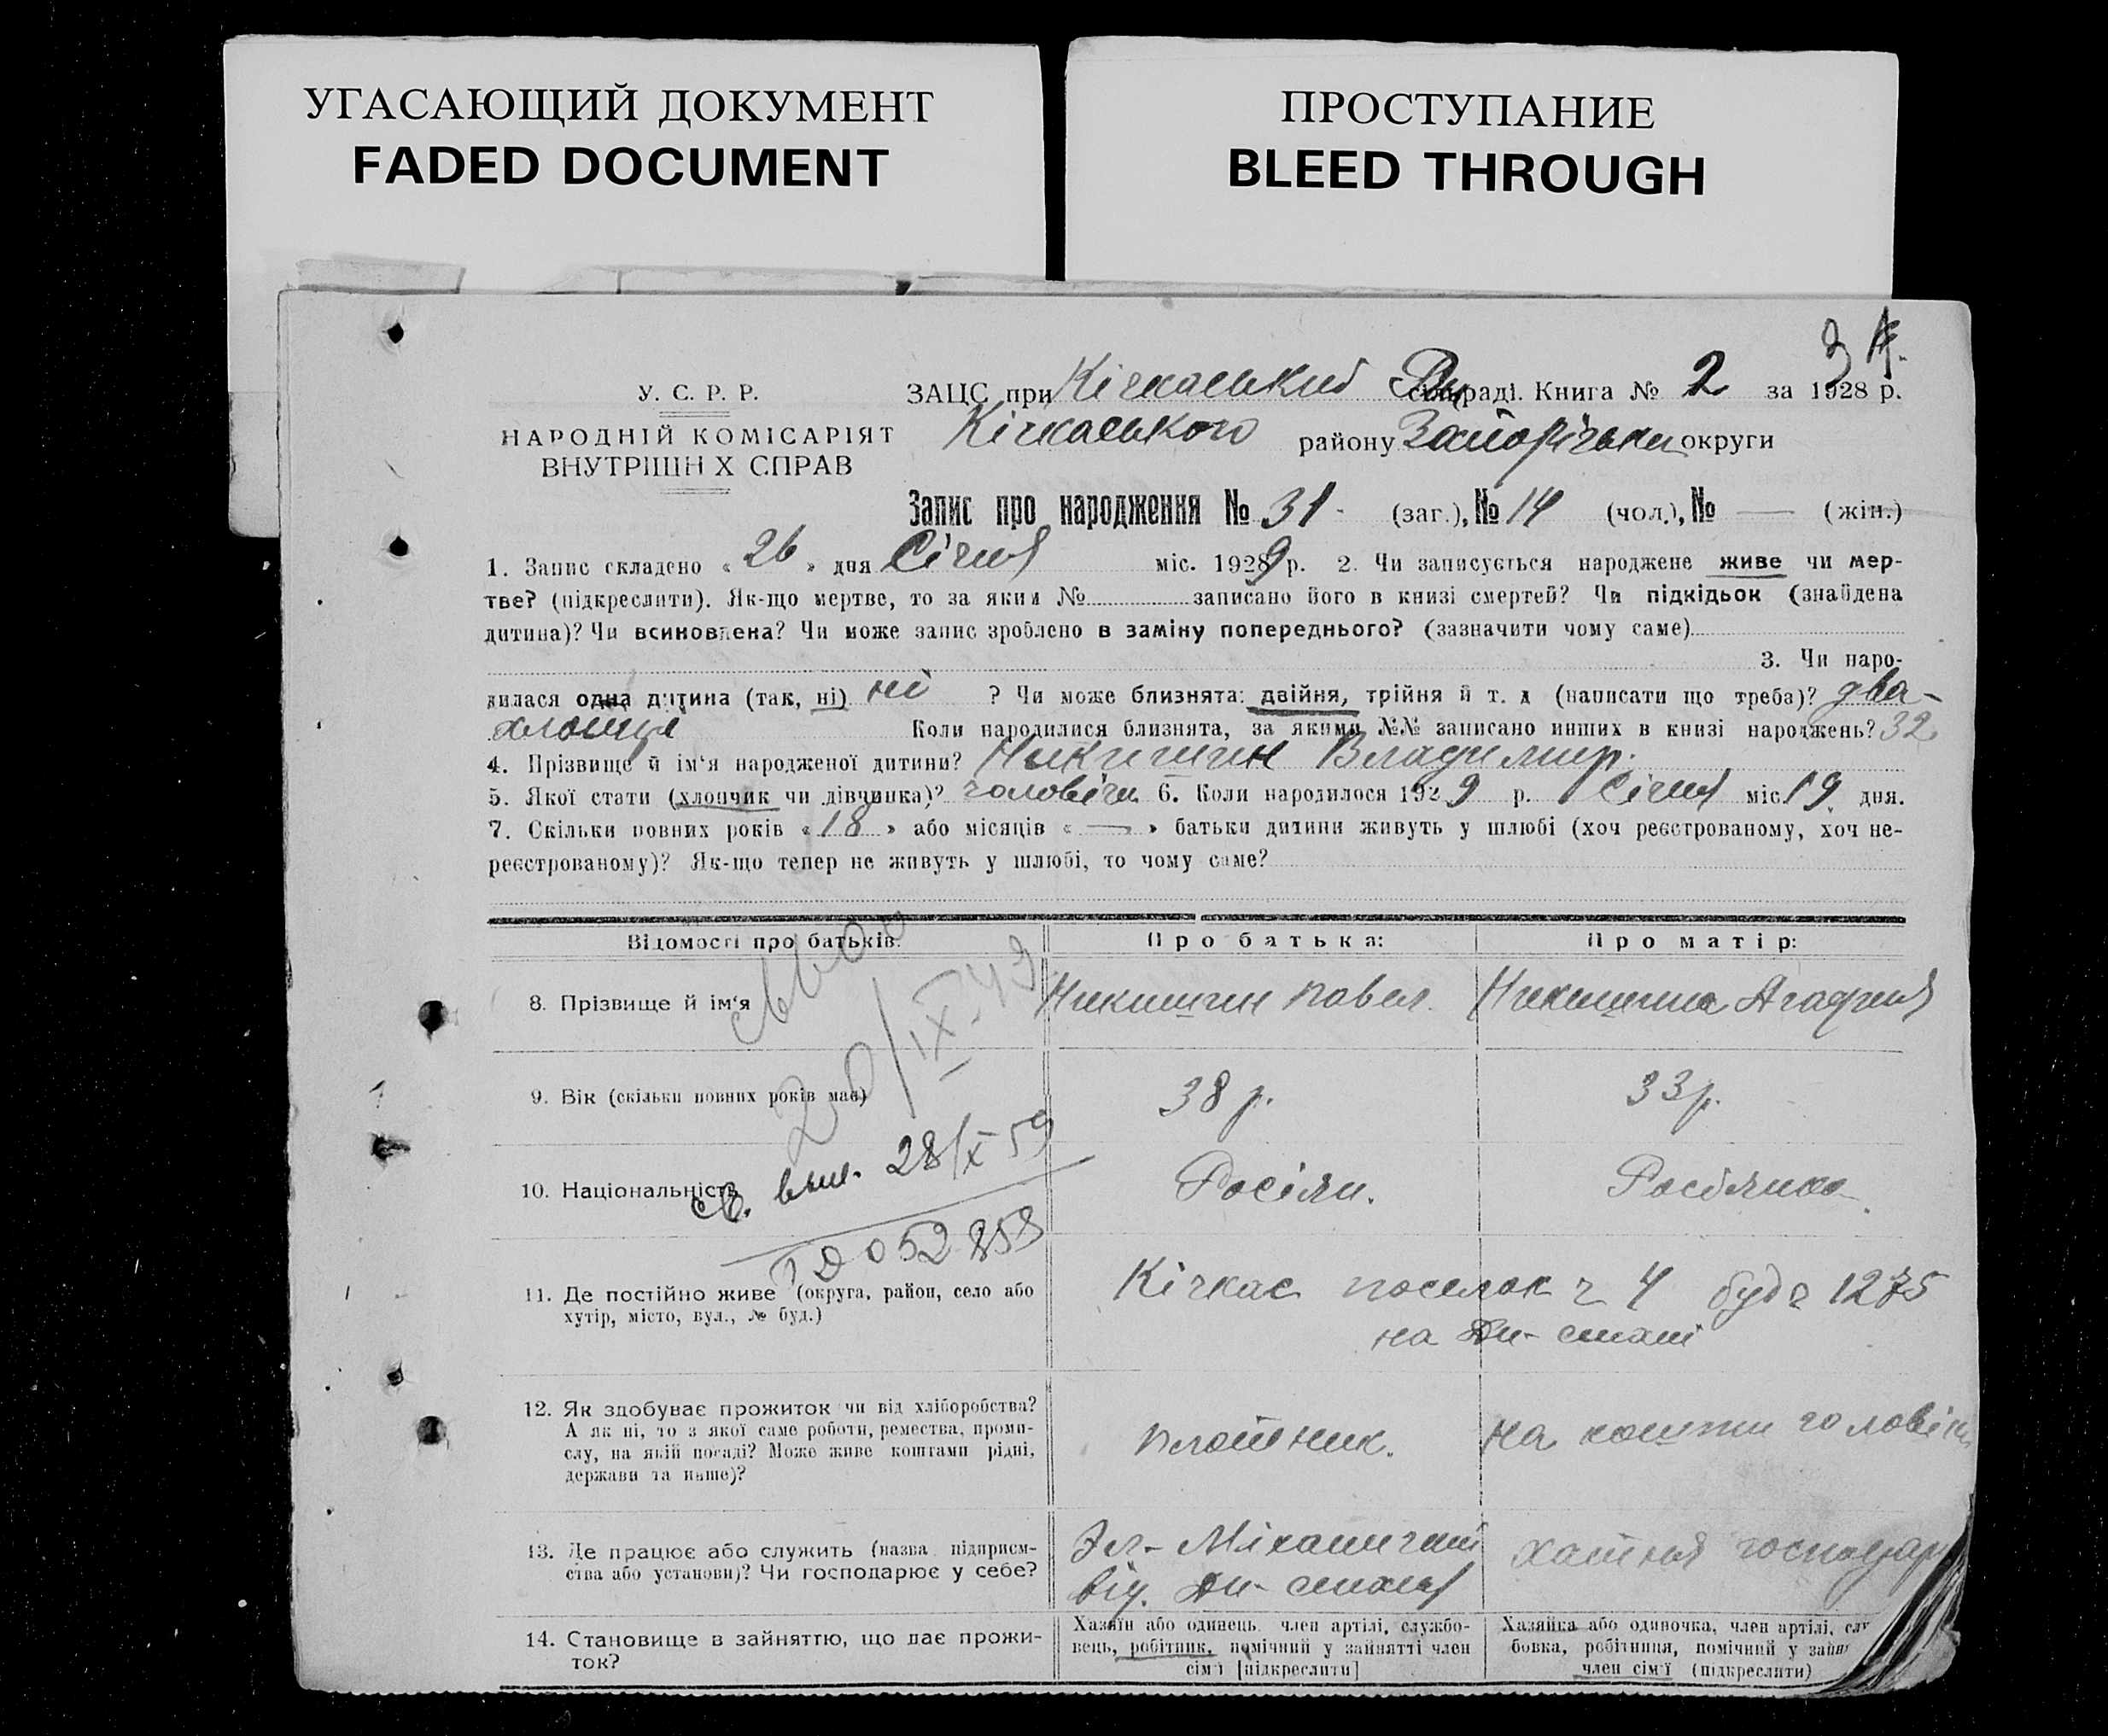 УГАСАЮЩИЙ ДОКУМЕНТ
FADED DOCUMENT
ПРОСТУПАНИЕ
BLEED THROUGH
У. С. Р. Р.
НАРОДНІЙ КОМІСАРІЯТ
ВНУТРІШН Х СПРАВ
ЗАЦС при Кічкаський раді. Книга № 2 за 1928 р.
Кічкаського району Запорізьки округи
Запис про народження № 31 - (заг.), № 14 (чол.), № — (жін.)
1. Запис складено « 26 » дня Січня міс. 1929 р. 2. Чи записується народжене живе чи мер-
тве? (підкреслити). Як-що мертве, то за яким № записано його в книзі смертей? Чи підкідьок (знайдена
дитина)? Чи всиновлена? Чи може запис зроблено в заміну попереднього? (зазначити чому саме)
3. Чи наро-
дилася одна дитина (так, ні) ні ? Чи може близнята: двійня, трійня й т. д (написати що треба)? два-
хлопця Коли народилися близнята, за якими №№ записано инших в книзі народжень? 32
4. Прізвище й ім'я народженої дитини? Никишин Владимир.
5. Якої стати (хлопчик чи дівчинка)? чоловіча 6. Коли народилося 1929 р. Січня міс 19 дня.
7. Скільки повних років « 18 » або місяців « — » батьки дитини живуть у шлюбі (хоч реєстрованому, хоч не-
реєстрованому)? Як-що тепер не живуть у шлюбі, то чому саме?
Відомості про батьків: Про батька: Про матір:
8. Прізвище й ім'я Никишин Павел. Никишина Агафия
20/IX-49
9. Вік (скільки повних років має) 38 р. 33 р.
св. выл. 28/X 59
10. Національність Росіян. Росіянка
052853
11. Де постійно живе (округа, район, село або
хутір, місто, вул., № буд.)
Кічкас поселок ч 4 буд ч 1275
на Дн-стані
12. Як здобуває прожиток чи від хліборобства?
А як ні, то з якої саме роботи, ремества, проми-
слу, на якій посаді? Може живе коштами рідні,
держави та инше)?
плотник. на кошти чоловіка
13. Де працює або служить (назва підприєм-
ства або установи)? Чи господарює у себе?
Эл- Міханичний
від. Дн-
хатня господар
14. Становище в зайняттю, що дає прожи-
ток?
Хазяїн або одинець член артілі, службо-
вець, робітник, помічний у зайнятті член
сім'ї [підкреслити]
Хазяйка або одиночка, член артілі, слу
бовка, робітниця, помічний у зайн
член сім'ї (підкреслити)